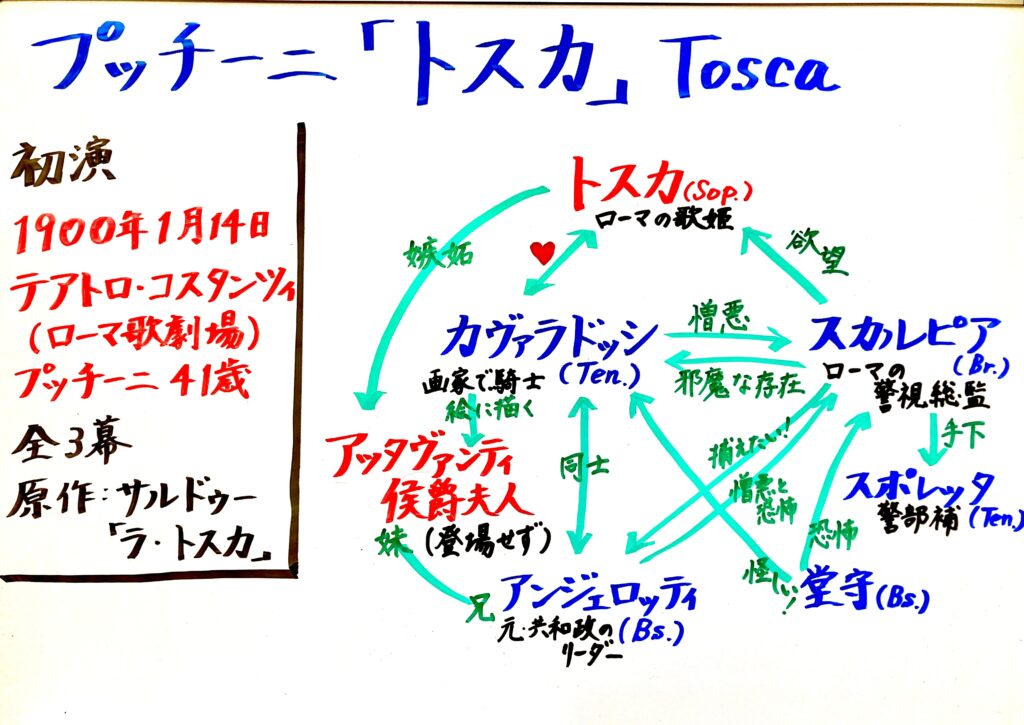 プッチーニ「トスカ」Tosca
初演
1900年1月14日
テアトロ・コスタンツィ
(ローマ歌劇場)
プッチーニ 41歳
全3幕
原作:サルドゥー
「ラ・トスカ」
トスカ(Sop.)
ローマの歌姫
嫉妬
欲望
カヴァラドッシ
(Ten.)
画家で騎士
絵に描く
憎悪
邪魔な存在
スカルピア
(Br.)
ローマの
警視総監
手下
スポレッタ
警部補(Ten.)
アッタヴァンティ
侯爵夫人
(登場せず)
妹
兄
同士
捕えたい!
憎悪と
恐怖
恐怖
怪しい!
堂守(Bs.)
アンジェロッティ
元・共和政の
リーダー
(Bs.)